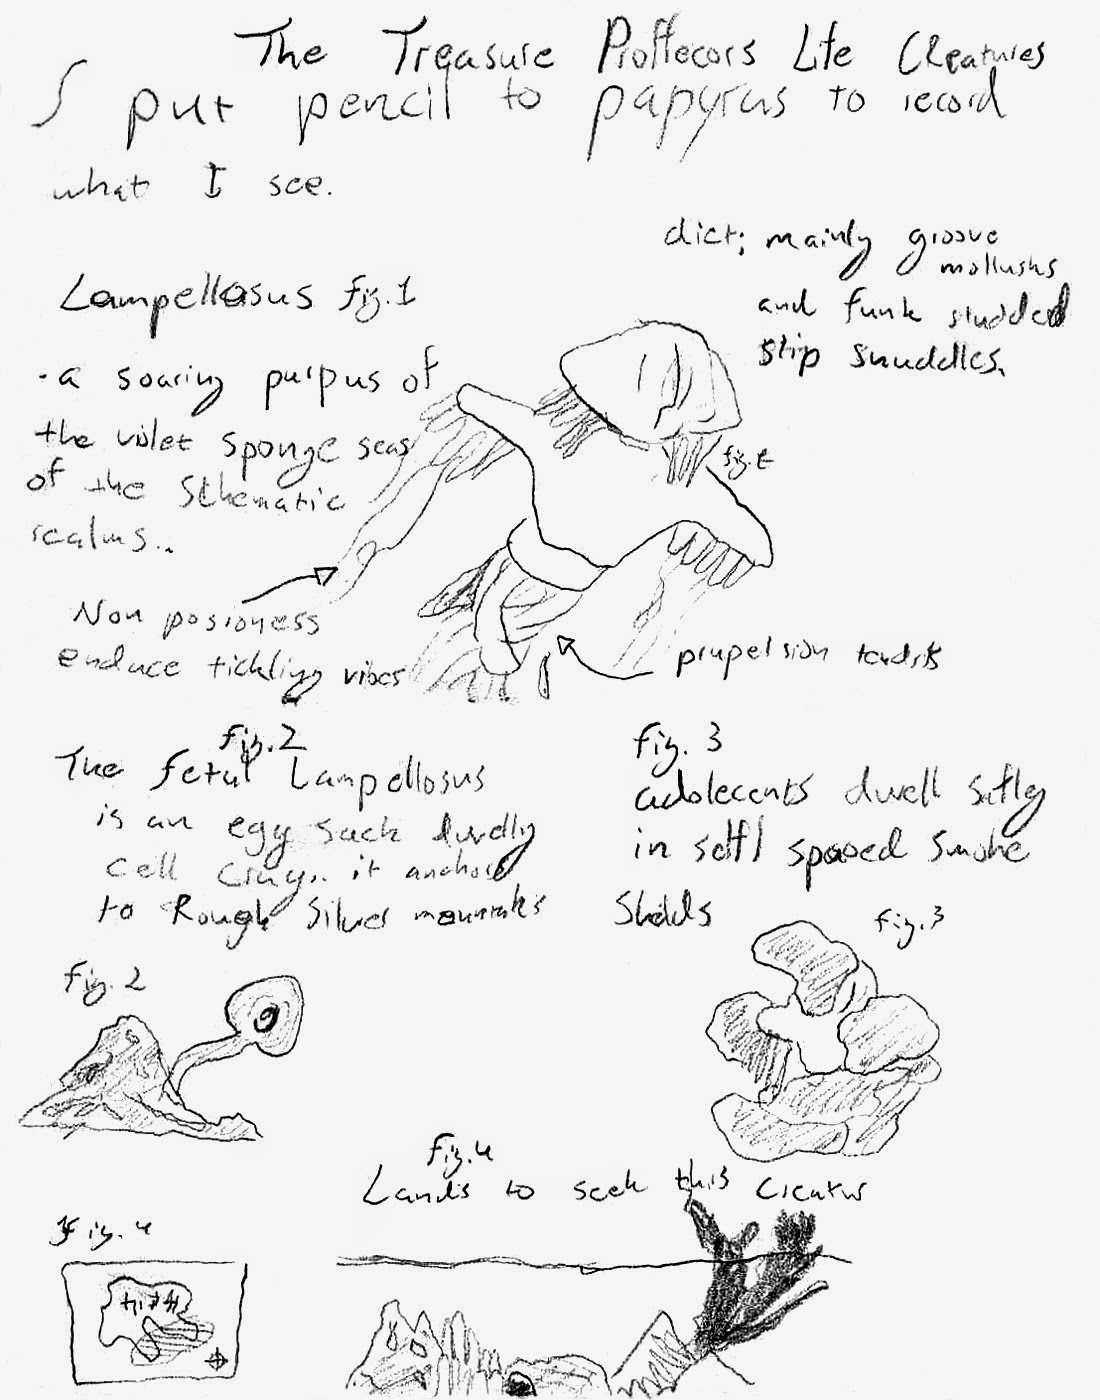 The Treasure Proffecors Life Creatures
I put pencil to papyrus to record
what I see.
diet; mainly groove
mollusks
and funk studded
slip snuddles.
Lampellosus fig.1
- a soaring purpus of
the violet sponge seas
of the Sthematic
realms..
fig.
Non posioness
enduce tickling vibes
propelsion
fig.2
The fetul Lampellosus
is an egg sack
cell it anchors
to Rough Silver
fig. 3
adolecents dwell saftly
in spaced smoke
fig.3
fig. 2
fig.4
Lands to seek this
fig.4